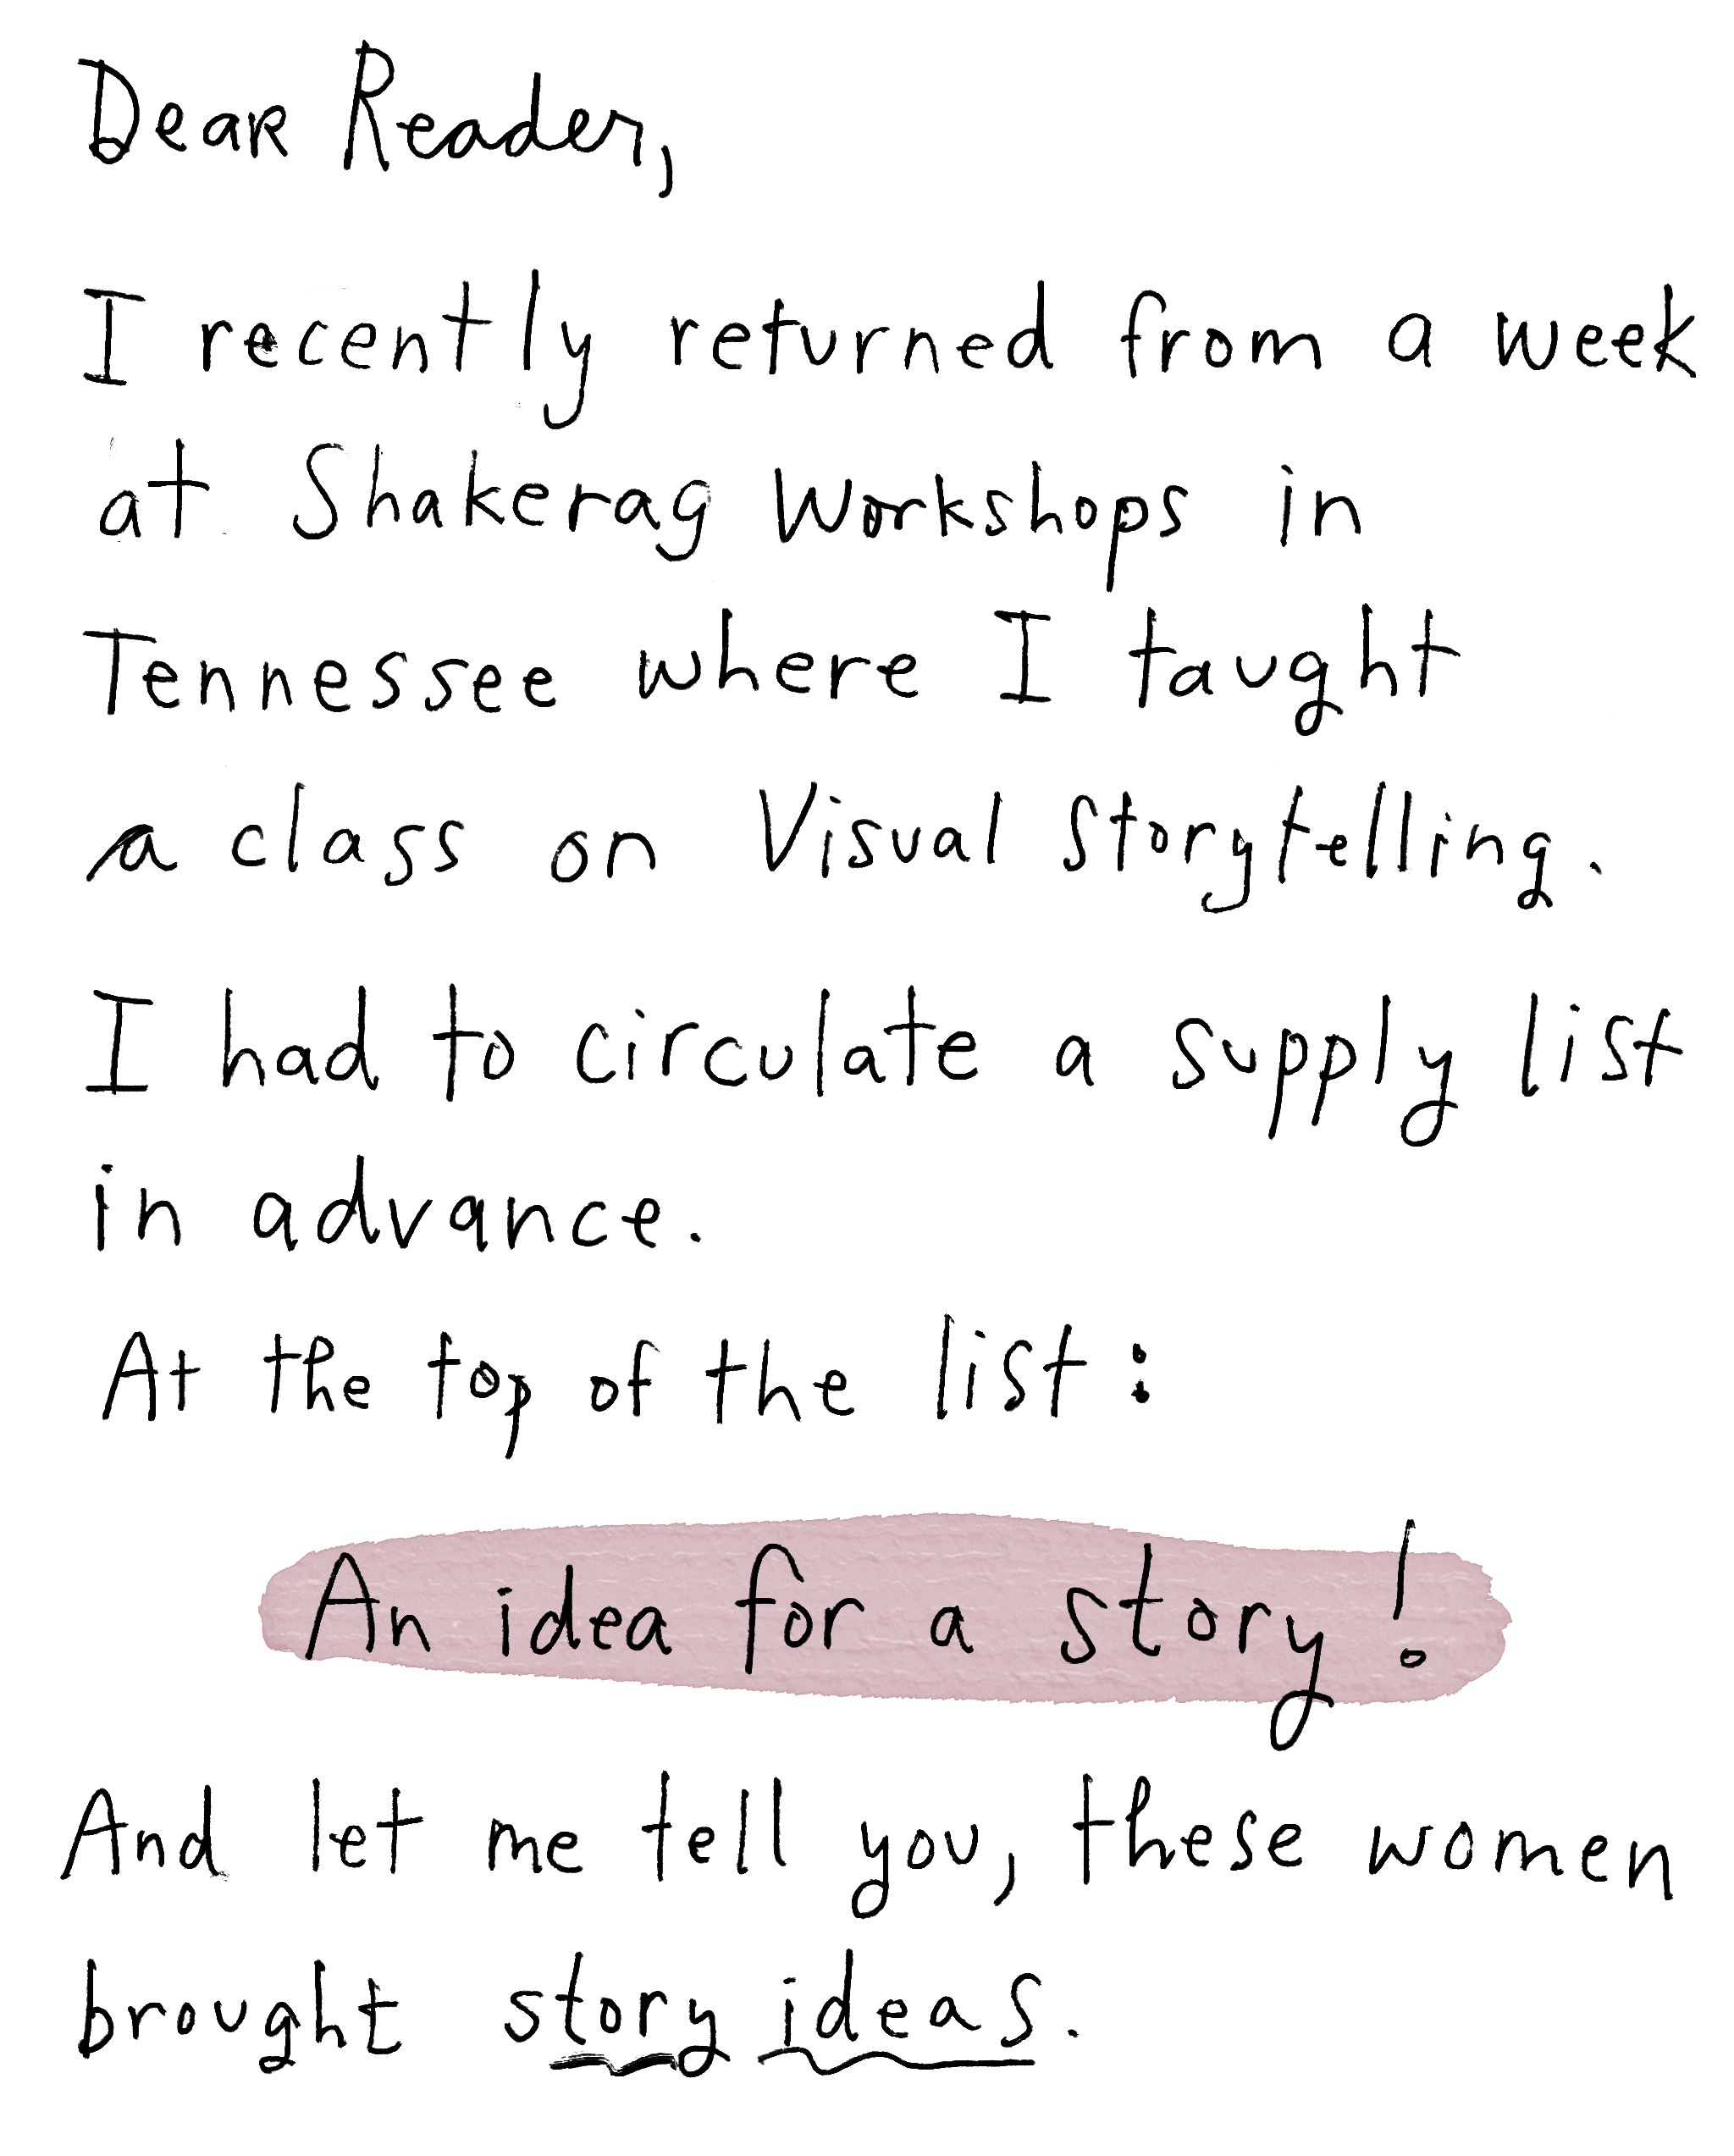 Dear Reader,
I recently returned from a week
at Shakerag Workshops in
Tennessee where I taught
a class on Visual Storytelling.
I had to circulate a supply list
in advance.
At the top of the list:
An idea for a story!
And let me tell you, these women
brought story ideas.